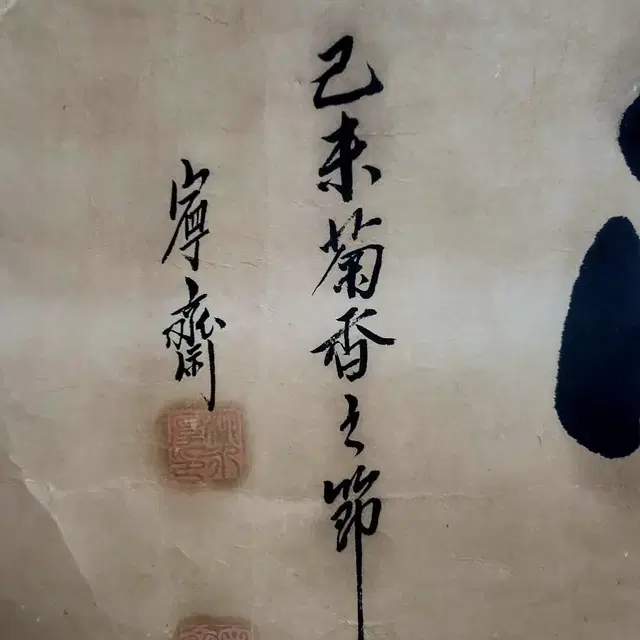 己未菊香之節
寧齋